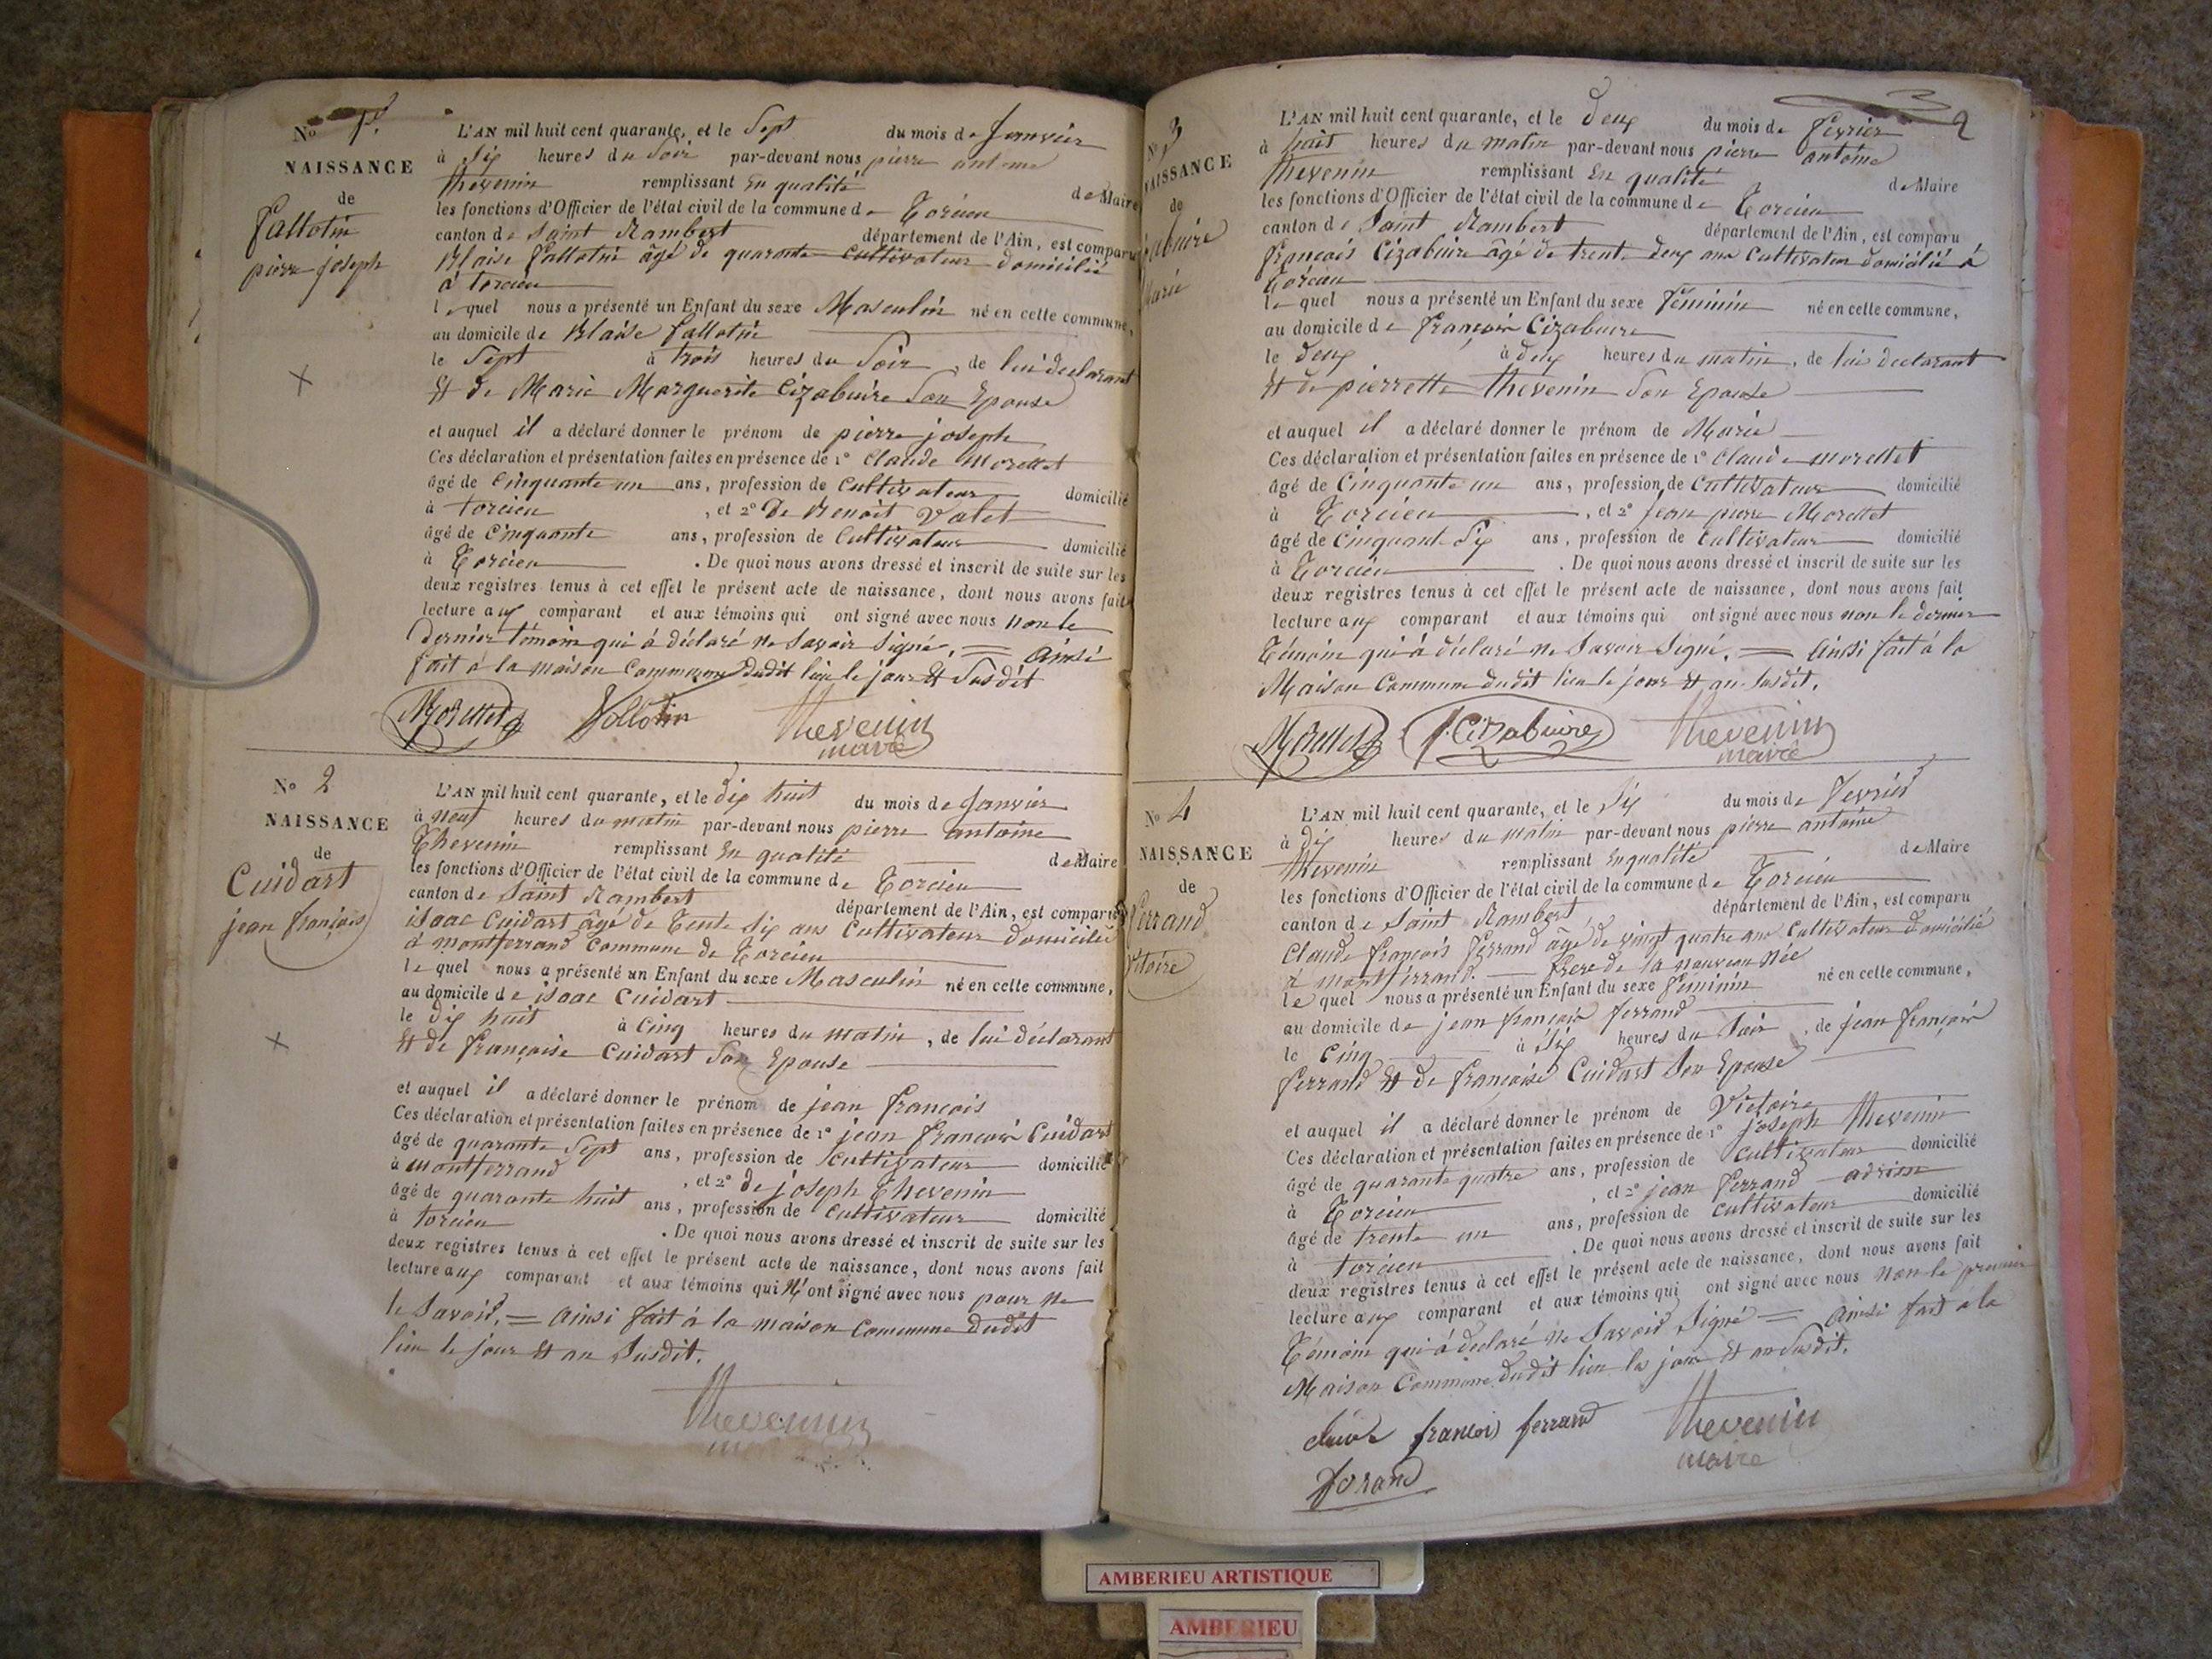 No 1er
NAISSANCE
de
fallotin
pierre joseph
L'AN mil huit cent quarante, et le Sept du mois de Janvier
à Six heures du Soir par-devant nous pierre antoine
thevenin remplissant En qualité de Maire
les fonctions d'Officier de l'état civil de la commune de Torcieu
canton de Saint Rambert département de l'Ain, est comparu
Blaise fallotin âgé de quarante cultivateur domicilié
à torcieu
lequel nous a présenté un Enfant du sexe Masculin né en cette commune,
au domicile de Blaise fallotin
le Sept à trois heures du Soir, de lui declarant
Et de Marie Marguerite Cizabuire Son Epouse
et auquel il a déclaré donner le prénom de pierre joseph
Ces déclaration et présentation faites en présence de 1º Claude Morettet
âgé de Cinquante un ans, profession de Cultivateur domicilié
à torcieu, et 2º De Benoit Valet
âgé de Cinquante ans, profession de Cultivateur domicilié
à Torcieu. De quoi nous avons dressé et inscrit de suite sur les
deux registres tenus à cet effet le présent acte de naissance, dont nous avons fait
lecture aux comparant et aux témoins qui ont signé avec nous non le
dernier témoin qui à déclaré ne Savoir Signé. = Ainsi
fait à la maison Commune dudit lieu le jour Et Susdit
Morettet fallotin Thevenin
maire
No 2
NAISSANCE
de
Cuidart
jean françois
L'AN mil huit cent quarante, et le dix huit du mois de Janvier
à neuf heures du matin par-devant nous pierre antoine
Thevenin remplissant En qualité de Maire
les fonctions d'Officier de l'état civil de la commune de Torcieu
canton de Saint Rambert département de l'Ain, est comparu
isaac Cuidart âgé de Tente Six ans Cultivateur domicilié
à montferrand Commune de Torcieu
lequel nous a présenté un Enfant du sexe Masculin né en cette commune,
au domicile de isaac Cuidart
le dix huit à Cinq heures du matin, de lui déclarant
Et de françoise Cuidart Son Epouse
et auquel il a déclaré donner le prénom de jean françois
Ces déclaration et présentation faites en présence de 1º jean françois Cuidart
âgé de quarante Sept ans, profession de Cultivateur domicilié
à montferrand, et 2º de joseph Thevenin
âgé de quarante huit ans, profession de Cultivateur domicilié
à torcieu. De quoi nous avons dressé et inscrit de suite sur les
deux registres tenus à cet effet le présent acte de naissance, dont nous avons fait
lecture aux comparant et aux témoins qui N'ont signé avec nous pour ne
le Savoir. = Ainsi fait à la maison Commune dudit
lieu le jour Et an Susdit.
Thevenin
maire
2
No 3
NAISSANCE
de
Cizabuire
Marie
L'AN mil huit cent quarante, et le deux du mois de fevrier
à huit heures du matin par-devant nous pierre antoine
thevenin remplissant En qualité de Maire
les fonctions d'Officier de l'état civil de la commune de Torcieu
canton de Saint Rambert département de l'Ain, est comparu
françois Cizabuire âgé de trente deux ans Cultivateur domicilié à
Torcieu
lequel nous a présenté un Enfant du sexe féminin né en cette commune,
au domicile de françois Cizabuire
le deux à deux heures du matin, de lui declarant
Et de pierrette thevenin Son Epouse
et auquel il a déclaré donner le prénom de Marie
Ces déclaration et présentation faites en présence de 1º Claude morettet
âgé de Cinquante un ans, profession de Cultivateur domicilié
à Torcieu, et 2º jean pierre Morettet
âgé de Cinquante Six ans, profession de Cultivateur domicilié
à Torcieu. De quoi nous avons dressé et inscrit de suite sur les
deux registres tenus à cet effet le présent acte de naissance, dont nous avons fait
lecture aux comparant et aux témoins qui ont signé avec nous non le dernier
Témoin qui à déclaré ne Savoir Signé. = Ainsi fait à la
Maison Commune dudit lieu le jour Et an Susdit.
Morettet f. Cizabuire Thevenin
maire
No 4
NAISSANCE
de
Ferrand
Vitoire
L'AN mil huit cent quarante, et le Six du mois de Fevrier
à dix heures du matin par-devant nous pierre antoine
thevenin remplissant En qualité de Maire
les fonctions d'Officier de l'état civil de la commune de Torcieu
canton de Saint Rambert département de l'Ain, est comparu
Claude françois Ferrand âgé de vingt quatre ans Cultivateur domicilié
à montferrand. frere de la nouveau Née
lequel nous a présenté un Enfant du sexe féminin né en cette commune,
au domicile de jean françois ferrand
le Cinq à Six heures du Soir, de jean françois
ferrand Et de françoise Cuidart Son Epouse
et auquel il a déclaré donner le prénom de Victoire
Ces déclaration et présentation faites en présence de 1º joseph thevenin
âgé de quarante quatre ans, profession de Cultivateur domicilié
à Torcieu, et 2º jean Ferrand adrien
âgé de trente un ans, profession de Cultivateur domicilié
à torcieu. De quoi nous avons dressé et inscrit de suite sur les
deux registres tenus à cet effet le présent acte de naissance, dont nous avons fait
lecture aux comparant et aux témoins qui ont signé avec nous non le premier
Témoin qui à declaré ne Savoir Signé = Ainsi fait a la
Maison Commune dudit lieu les jour Et an Susdit.
claude francois ferrand Thevenin
maire
ferrand
AMBERIEU ARTISTIQUE
AMBERIEU